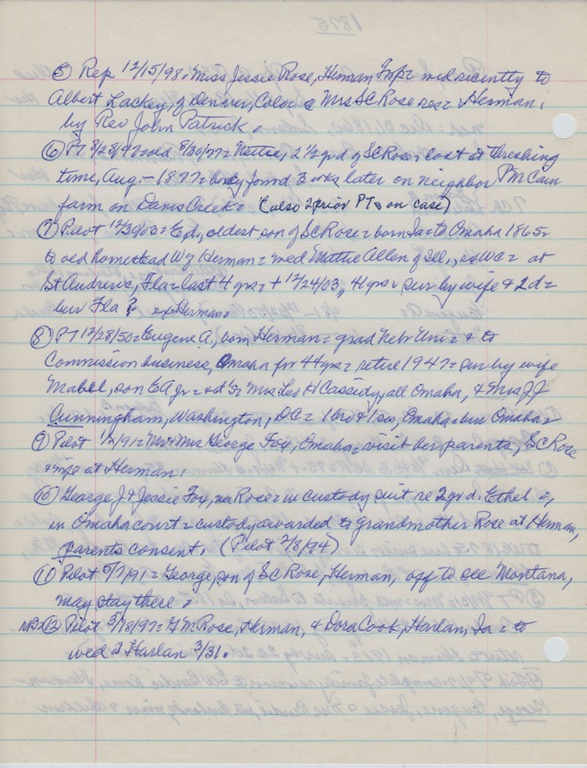 ⑤ Rep 12/15/98 = Miss Jessie Rose, Herman = wed recently to
Albert Lackey, of Denver, Colo = Mrs SC Rose res = Herman;
by Rev John Patrick.
⑥ PT 8/28/97 old 8/30/77 = Nettie, 2½ yrd of SC Rose = lost at threshing
time, Aug - 1877 = body found 3 wks later on neighbor McCain
farm on Davis Creek = (also 2 prior PTs on case)
⑦ Pilot 12/30/03 = Ed, oldest son of SC Rose = born Ia = to Omaha 1865 =
to old homestead W of Herman = wed Mattie Allen of Ill, = at
St Andrews, Fla = last 4 yrs = + 12/24/03, 41 yrs = sur by wife & 2d =
bur Fla?
⑧ PT 12/28/50 = Eugene A., born Herman = grad Nebr Uni = & to
Commission business, Omaha for 44 yrs = retire 1947 = sur by wife
Mabel, son EA Jr = & d's = Mrs Leo H Cassidy, all Omaha, & Mrs JJ
Cunningham, Washington, DC = 1 bro & 1 sis, Omaha = bur Omaha =
⑨ Pilot 1/1/91 = Mr & Mrs George Foy, Omaha = visit her parents, SC Rose
at Herman.
⑩ George J & Jessie Foy, nee Rose = in custody suit re 2 yrd. Ethel =
in Omaha court = custody awarded to grandmother Rose at Herman,
parents consent. (Pilot 2/8/94)
⑪ Pilot 5/7/91 = George, son of SC Rose, Herman, off to see Montana,
may stay there =
⑫ Pilot 3/18/97 = Rose, Herman, & Dora Cook, Harlan, Ia = to
wed at Harlan 3/31.